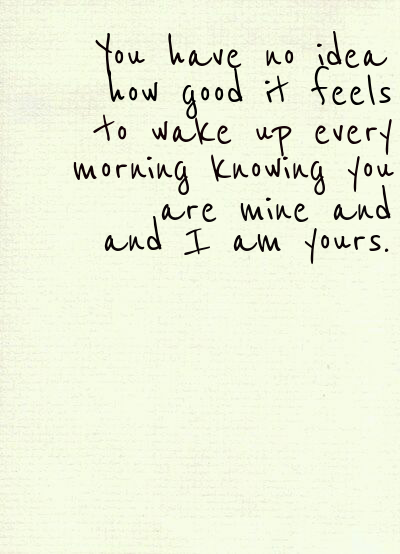 You have no idea
how good it feels
to wake up every
morning knowing you
are mine and
and I am yours.